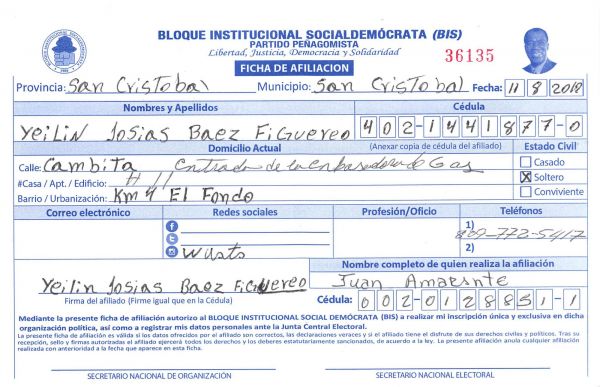 BLOQUE INSTITUCIONAL SOCIALDEMÓCRATA (BIS)
PARTIDO PEÑAGOMISTA
Libertad, Justicia, Democracia y Solidaridad
36135
FICHA DE AFILIACION
Provincia: San Cristobal Municipio: San Cristobal Fecha: 11/8/2018
Nombres y Apellidos Cédula
Yeilin Josias Baez Figuereo 402-1441877-0
Domicilio Actual (Anexar copia de cédula del afiliado) Estado Civil
Calle: Cambita Entrada de la enbasadora de Gas Casado
#Casa / Apt. / Edificio: # 11 X Soltero
Barrio / Urbanización: Km 4 El Fondo Conviviente
Correo electrónico Redes sociales Profesión/Oficio Teléfonos
1) 809-772-5417
2)
Nombre completo de quien realiza la afiliación
Yeilin Josias Baez Figuereo Juan Amarante
Firma del afiliado (Firme igual que en la Cédula) Cédula: 002-0128851-1
Mediante la presente ficha de afiliación autorizo al BLOQUE INSTITUCIONAL SOCIAL DEMÓCRATA (BIS) a realizar mi inscripción única y exclusiva en dicha
organización política, así como a registrar mis datos personales ante la Junta Central Electoral.
La presente ficha de afiliación es válida si los datos ofrecidos por el afiliado son correctos, las declaraciones veraces y si el afiliado tiene el disfrute de sus derechos civiles y políticos. Tras su
recepción, sello y firmas autorizadas el afiliado ejercerá todos los derechos y los deberes estatutariamente sancionados, de acuerdo a la ley. La presente afiliación anula cualquier afiliación
realizada con anterioridad a la fecha que aparece en esta ficha.
SECRETARIO NACIONAL DE ORGANIZACIÓN SECRETARIO NACIONAL ELECTORAL